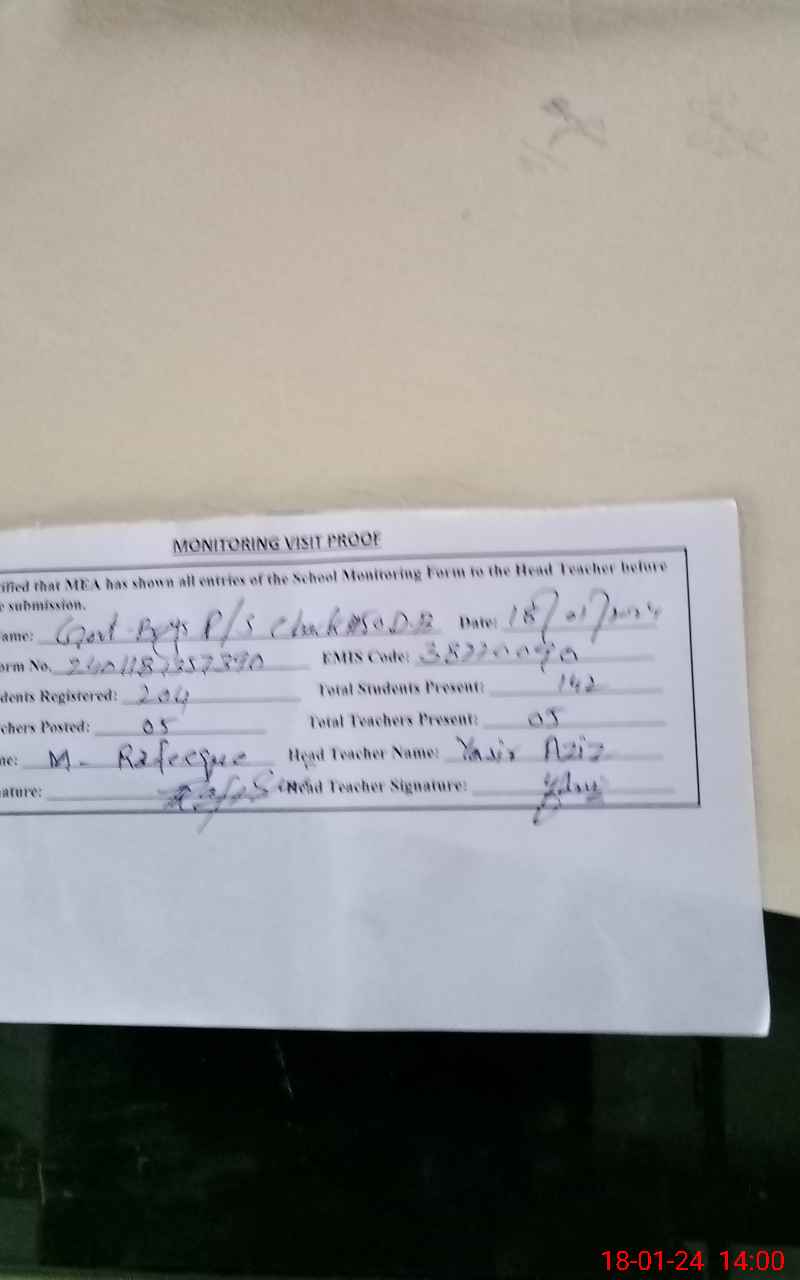 MONITORING VISIT PROOF
ified that MEA has shown all entries of the School Monitoring Form to the Head Teacher before
e submission.
ame: Govt Boys P/S Chack D.B Date: 18/01/2024
orm No. EMIS Code:
dents Registered: 204 Total Students Present: 142
chers Posted: 05 Total Teachers Present: 05
ne: M. Rafeeque Head Teacher Name: Yasir Aziz
ature: Head Teacher Signature:
18-01-24 14:00